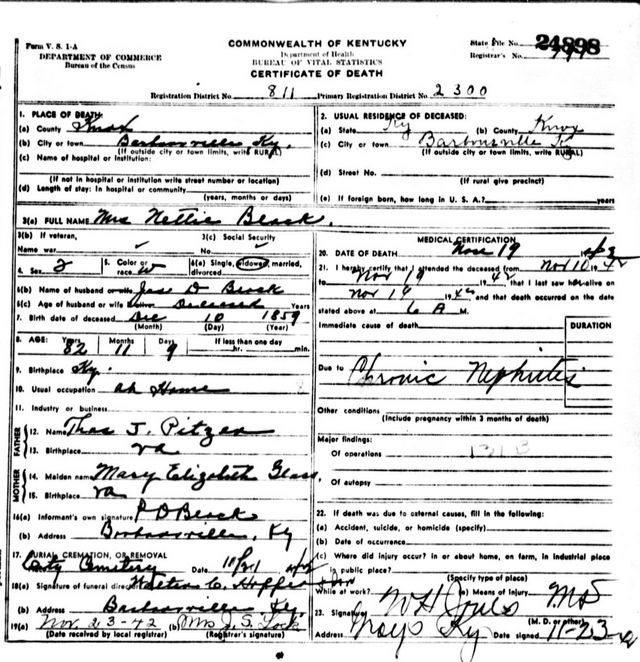 Form V. S. 1-A
DEPARTMENT OF COMMERCE
Bureau of the Census
COMMONWEALTH OF KENTUCKY
Department of Health
BUREAU OF VITAL STATISTICS
CERTIFICATE OF DEATH
State File No. 24898
Registrar's No.
Registration District No. 811 Primary Registration District No. 2300
1. PLACE OF DEATH:
(a) County Knox
(b) City or town Barbourville, Ky.
(If outside city or town limits, write RURAL)
(c) Name of hospital or institution:
(If not in hospital or institution write street number or location)
(d) Length of stay: In hospital or community
(years, months or days)
2. USUAL RESIDENCE OF DECEASED:
(a) State Ky (b) County Knox
(c) City or town Barbourville Ky
(If outside city or town limits, write RURAL)
(d) Street No.
(If rural give precinct)
(e) If foreign born, how long in U. S. A.? years
3(a) FULL NAME Mrs Nettie Black.
3(b) If veteran,
Name war ✓
3(c) Social Security
No. ✓
4. Sex F 5. Color or race W 6(a) Single, widowed, married, divorced
6(b) Name of husband or wife D
6(c) Age of husband or wife Deceased Years
7. Birth date of deceased Dec 10 1859
(Month) (Day) (Year)
8. AGE: Years Months Days If less than one day
82 11 9 hr. min.
9. Birthplace Ky.
10. Usual occupation at Home
11. Industry or business
FATHER
12. Name Thos J. Pitzer
13. Birthplace Va
MOTHER
14. Maiden name Mary Elizabeth Glass.
15. Birthplace Va
16(a) Informant's own signature P D Black
(b) Address Barbourville, Ky
17. BURIAL, CREMATION, OR REMOVAL
City Cemetery Date 11/21
18(a) Signature of funeral director Walter C. Hopper
(b) Address Barbourville, Ky.
19(a) Nov. 23-42 (b) Mrs J. S. Lock
(Date received by local registrar) (Registrar's signature)
MEDICAL CERTIFICATION
20. DATE OF DEATH Nov 19 1942
21. I hereby certify that I attended the deceased from Nov 10 1942
to Nov 19 1942 that I last saw h alive on
Nov 19 1942 and that death occurred on the date
stated above at 6 A M.
Immediate cause of death
DURATION
Due to Chronic Nephritis
Other conditions
(Include pregnancy within 3 months of death)
Major findings:
Of operations
Of autopsy
22. If death was due to external causes, fill in the following:
(a) Accident, suicide, or homicide (specify)
(b) Date of occurrence
(c) Where did injury occur? in or about home, on farm, in industrial place
in public place?
(Specify type of place)
While at work? (e) Means of injury
23. Signature W H M.D
(M. D. or other)
Address Grays Ky Date signed 11-23-42